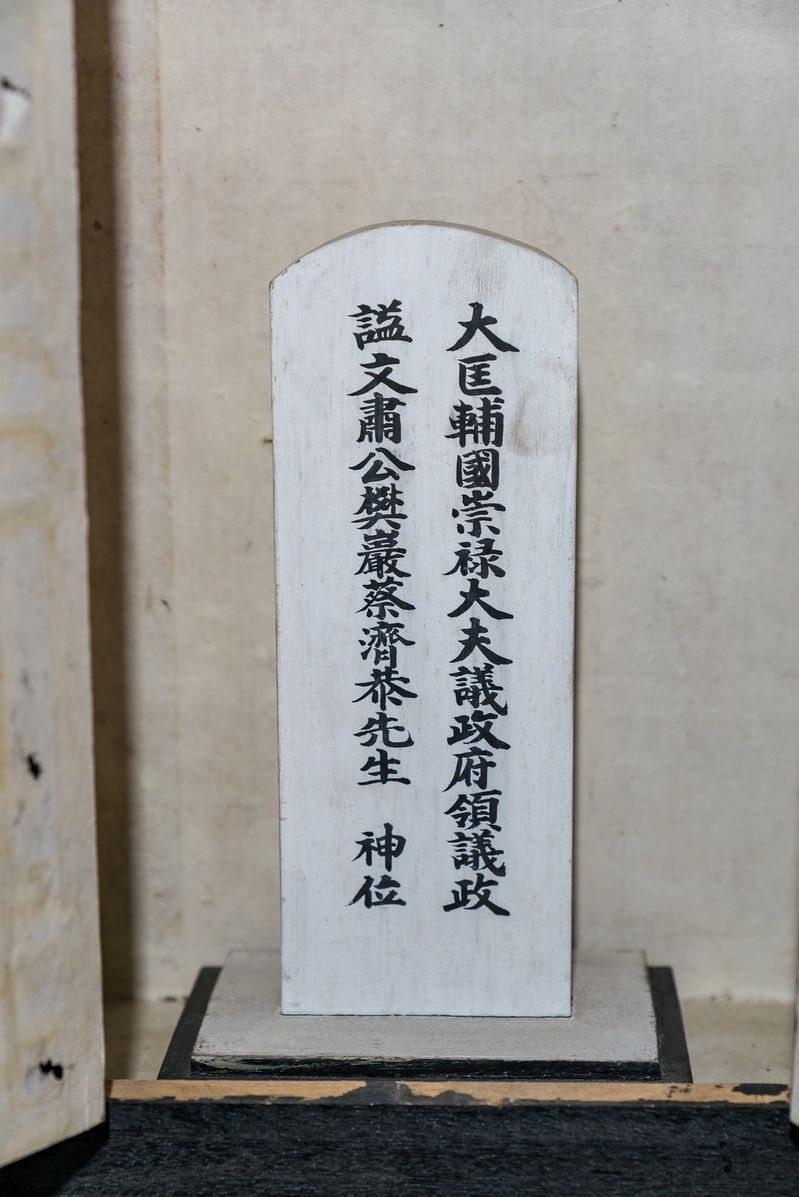 大匡輔國崇禄大夫議政府領議政
謚文肅公樊巖蔡濟恭先生 神位